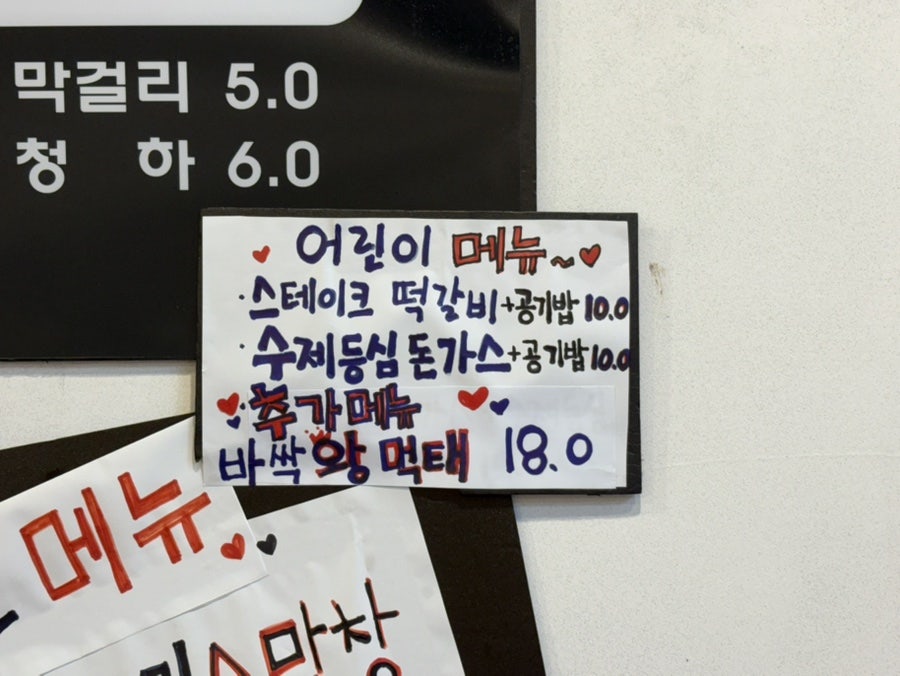 막걸리 5.0
청 하 6.0
어린이 메뉴~
·스테이크 떡갈비+공기밥 10.0
·수제등심돈가스+공기밥 10.0
추가메뉴
바싹 왕 먹태 18.0
메뉴